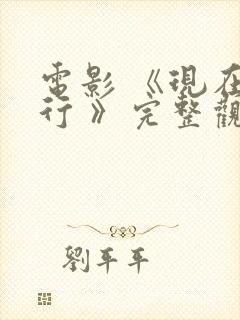 電影《現在
行》完整觀
劉平平